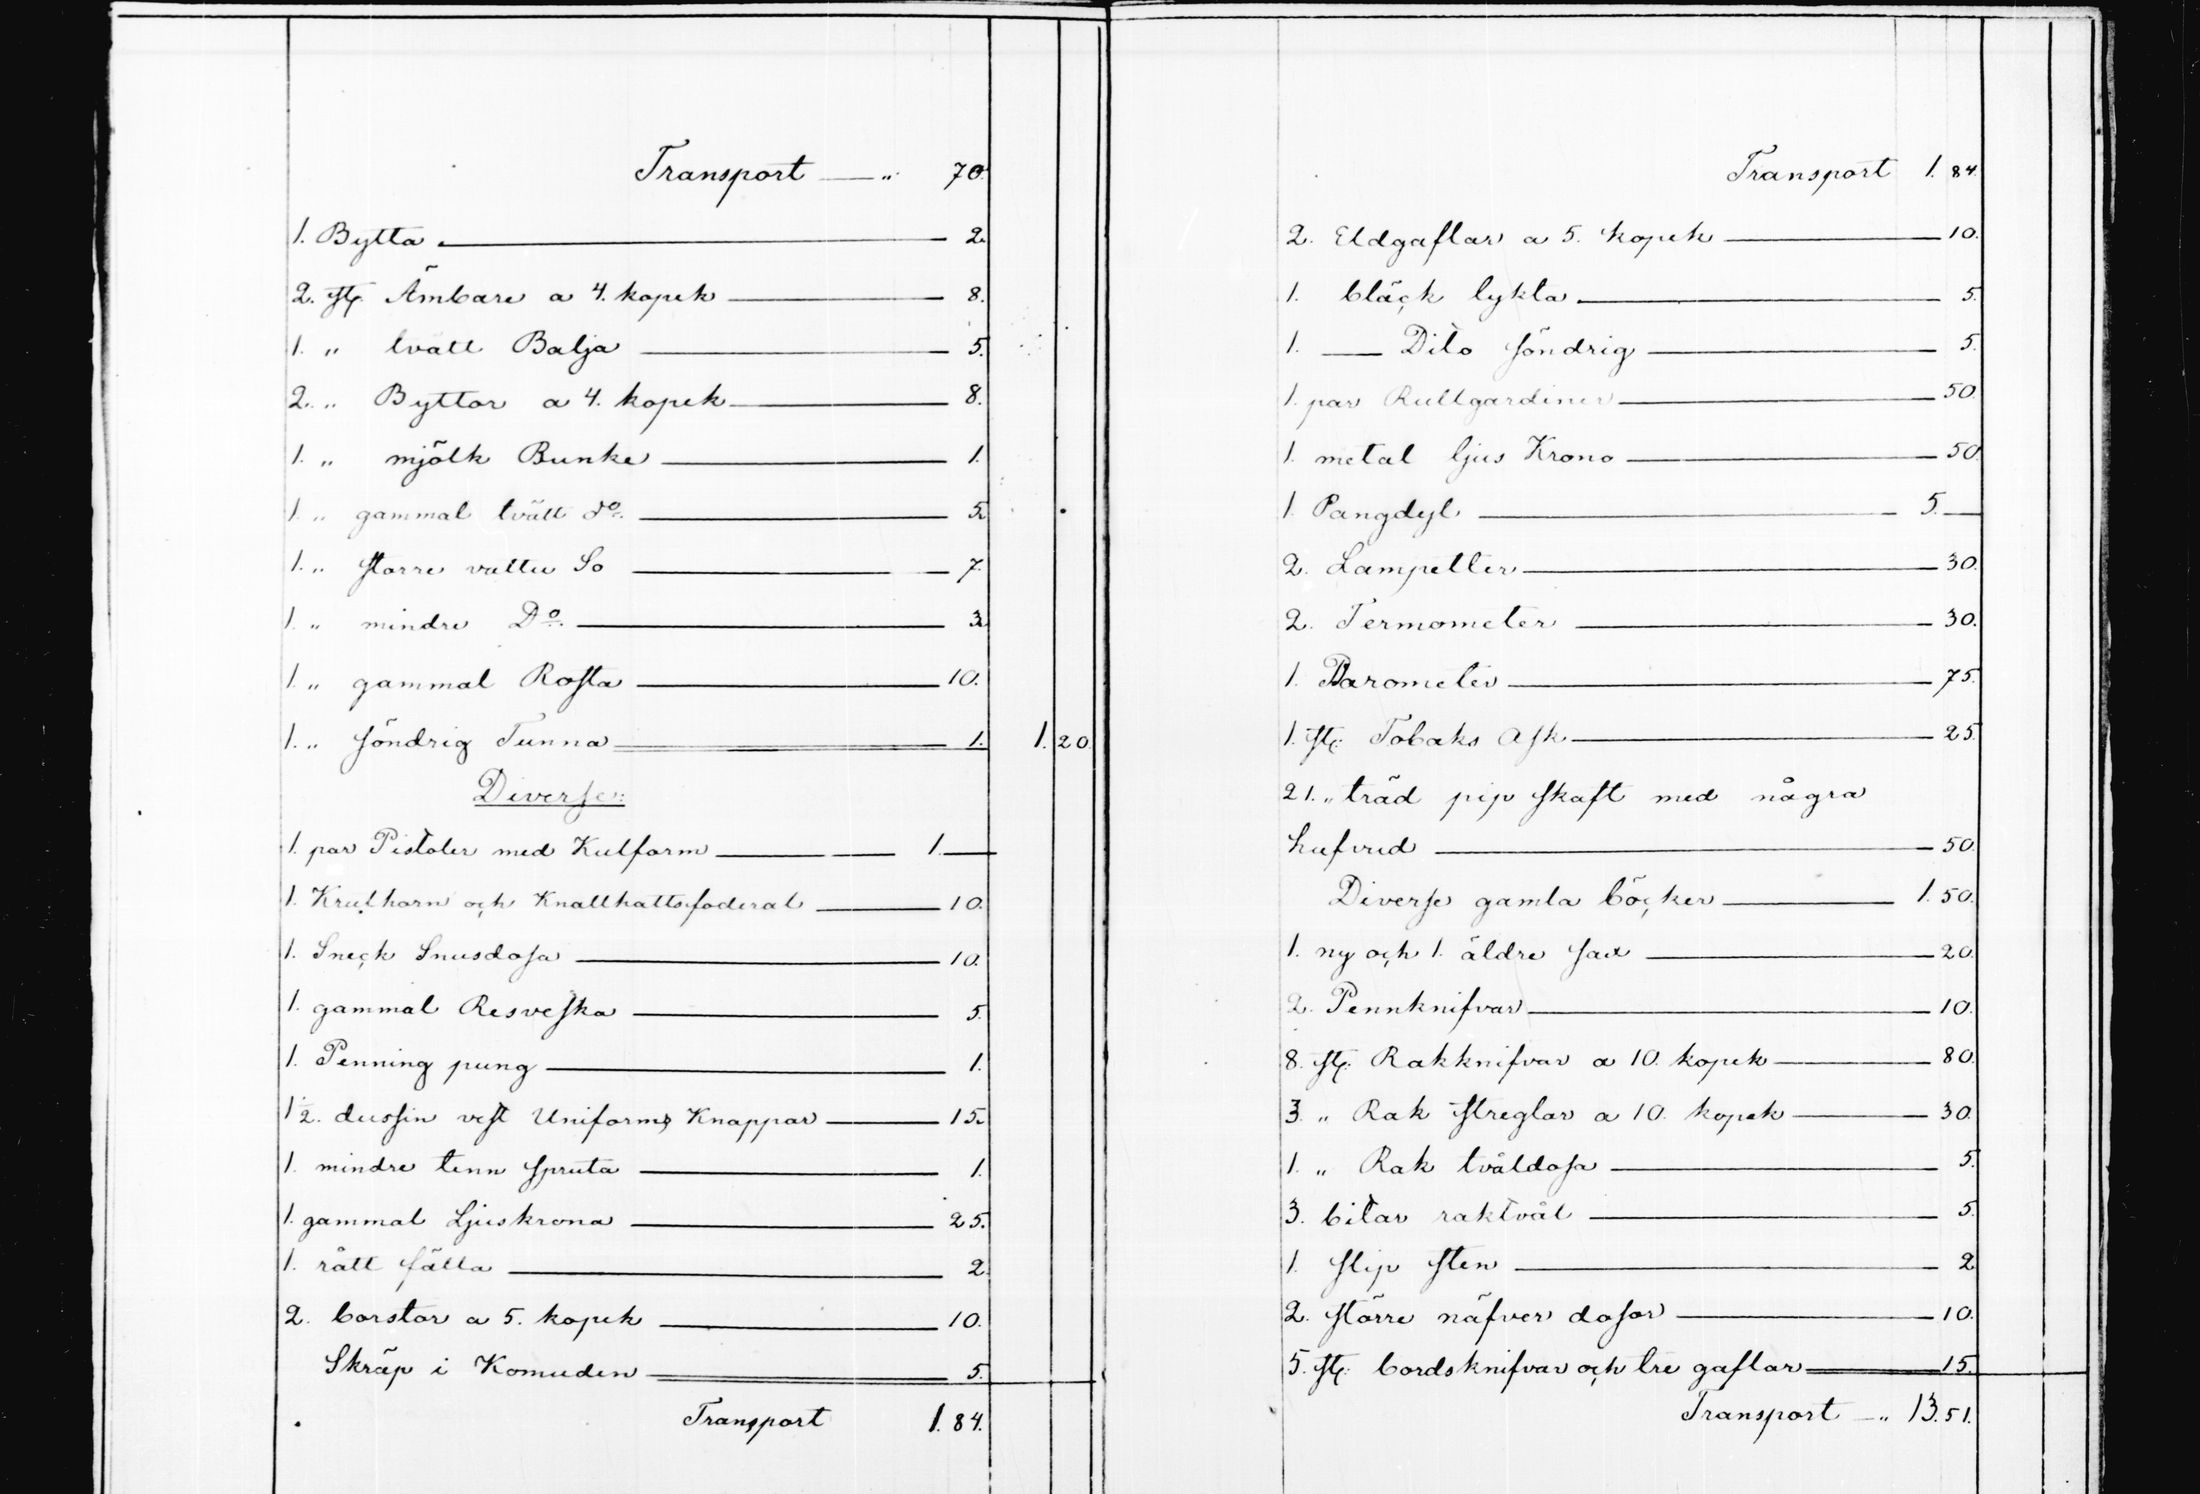 Transport — „ 70.
1. Bytta — 2.
2. st. Ämbare a 4. kopek — 8.
1. „ tvätt Balja — 5.
2. „ Byttor a 4. kopek — 8.
1. „ mjölk Bunke — 1.
1. „ gammal tvätt do. — 5.
1. „ större vattu So — 7.
1. „ mindre Do. — 3.
1. „ gammal Rosta — 10.
1. „ söndrig Tunna — 1. 1. 20.
Diverse:
1. par Pistoler med Kulform — 1. —
1. Kruthorn och Knallhattsfoderal — 10.
1. Sneck Snusdosa — 10.
1. gammal Resveska — 5.
1. Penning pung — 1.
1/2. dussin vest Uniforms Knappar — 15.
1. mindre tenn spruta — 1.
1. gammal Ljuskrona — 25.
1. rått fälla — 2.
2. borstar a 5. kopek — 10.
Skräp i Komuden — 5.
Transport 1. 84.
Transport 1. 84.
2. Eldgaflar a 5. kopek — 10.
1. bläck lykta — 5.
1. — Dito söndrig — 5.
1. par Rullgardiner — 50.
1. metal ljus Krona — 50.
1. Pangdyl — 5. —
2. Lampetter — 30.
2. Termometer — 30.
1. Barometer — 75.
1. st. Tobaks Ask — 25.
21. „ träd pip skaft med några
hufvud — 50.
Diverse gamla böcker — 1. 50.
1. ny och 1. äldre sax — 20.
2. Pennknifvar — 10.
8. st. Rakknifvar a 10. kopek — 80.
3. „ Rak streglar a 10. kopek — 30.
1. „ Rak tvåldosa — 5.
3. bitar raktvål — 5.
1. slip sten — 2
2. större näfver dosor — 10.
5. st. bordsknifvar och tre gaflar — 15.
Transport — „ 13. 51.